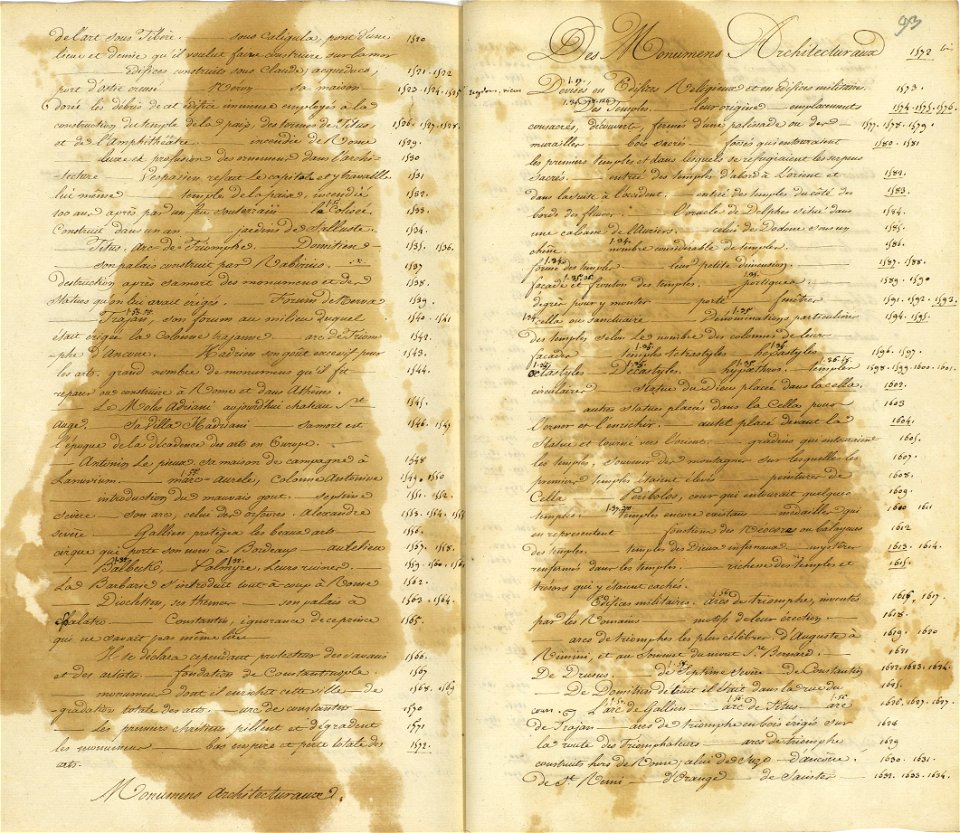 de l'art sous Tibère. — sous Caligula, pont d'une 1520
lieue et demie qu'il voulut faire construire sur la mer
— édifices construits sous Claude, acqueducs, 1521. 1522
port d'ostie creusé — Neron — sa maison 1523. 1524. 1525
dorée les débris de cet édifice immense employés à la
construction du temple de la paix, des termes de Titus, 1526. 1527. 1528.
et de l'Amphithéatre — incendie de Rome 1529.
— Luxe et profusion des ornemens dans l'archi- 1530
-tecture — Vespasien refait le capitole et y travaille 1531
lui même — temple de la paix, incendié 1532.
100 ans après par un feu souterrain — le Colisé. 1533.
Construit dans un an — jardins de Salluste. 1534.
— Titus, Arc de Triomphe. — Domitien — 1535. 1536.
— son palais construit par Rabirius. 1537
Destruction après sa mort des monumens et des 1538.
statues qu'on lui avait érigés. — Forum de Nerva 1539.
— Trajan, son forum au milieu duquel 1540. 1541
était érigée la Colonne trajanne — arc de Triom- 1542.
-phe d'Ancone. — Hadrien son goût excessif pour 1543.
les arts. grand nombre de monumens qu'il fit 1544.
reparer ou construire à Rome et dans Athènes.
— Le Moles Adriani aujourd'hui chateau St. 1545.
Ange. — Sa Villa Hadriani — sa mort est 1546. 1547
l'époque de la décadence des arts en Europe.
— Antonin Le pieux, sa maison de campagne à 1548
Lanuvium. — marc-aurele, colonne Antonine 1549. 1550
— introduction du mauvais gout. — septime 1551. 1552.
sevère — son arc, celui des orfèvres. Alexandre 1553. 1554.
sevère — Gallien protégea les beaux arts 1556.
cirque qui porte son nom à Bordeaux — aurélien 1557. 1558.
— Balbeck, Palmyre, leurs ruines. 1559. 1560.
La Barbarie s'introduit tout à coup à Rome 1562.
— Dioclétien, ses thermes — son palais à 1563. 1564.
Spalatro — Constantin, ignorance de ce prince 1565.
qui ne savait pas même lire —
— Il se déclara cependant protecteur des savans 1566.
et des artistes — fondation de Constantinople 1567
— monumens dont il enrichit cette ville — de 1568. 1569
-gradation totale des arts. — arc de constantin 1570
— les premiers chrétiens pillent et dégradent 1571.
les monumens — bas empire et perte totale des 1572.
arts.
Monumens Architecturaux.
93
Des Monumens Architecturaux 1572 bis
Divisés en Edifices Religieux et en édifices militaires. 1573.
Des Temples. — leur origine — emplacemens 1574. 1575. 1576.
consacrés, découverts, fermés d'une palissade ou des 1577. 1578. 1579.
murailles — bois sacrés — fossés qui entouraient 1580. 1581
les premiers temples et dans lesquels se réfugiaient les serpens
sacrés. — entrée des temples d'abord à l'orient et 1582.
dans la suite à l'occident. — entrée des temples du côté des 1583.
bords de fleuves. — l'oracle de Delphes situé dans 1584.
une cabane de lauriers. — celui de Dodone sous un 1585.
chêne. — nombre considérable de temples. 1586.
forme des temples — leur petite dimension — 1587. 1588.
façade et fronton des temples. — portiques — 1589. 1590
degrés pour y monter — porte — fenêtres 1591. 1592. 1593.
cella ou sanctuaire — Dénominations particulières 1594. 1595.
des temples selon le nombre des colonnes de leurs
façades — temples tetrastyles — hexastyles — 1596. 1597.
octastyles — Décastyles — hypœthres — temples 1598. 1599. 1600. 1601.
circulaires — Statue du dieu placée dans la cella. 1602.
— autres statues placées dans la Cella pour 1603
l'orner et l'enrichir. — autel placé devant la 1604.
Statue et tourné vers l'orient. — gradins qui entouraient 1605.
les temples, souvenir des montagnes sur lesquelles les 1607.
premiers temples étaient élevés — peintures de 1608.
Cella — Peribolos, cour qui entourait quelques 1609.
temples. — temples encore existans — medailles qui 1610 1611
en representent — fonctions des Néocores ou balayeurs 1612
des temples. — temples des Dieux infernaux — mystères 1613. 1614.
renfermés dans les temples. — richesse des temples et 1615.
trésors qui y étaient cachés.
Edifices militaires. Arcs de triomphe, inventés 1616. 1617.
par les Romains — motifs de leur érection — 1618.
— arcs de triomphes les plus célèbres. d'Auguste à 1619. 1620
Rimini, et au Sommet du mont St. Bernard. — 1621
De Drusus — de Septime Sévère — de Constantin 1622. 1623. 1624.
— de Domitien détruit il était dans la rue du 1625.
cours. — L'arc de Gallien — arc de Titus — arc 1626. 1627.
de Trajan — arcs de triomphe en bois érigés sur 1628
la route des Triomphateurs — arcs de triomphe 1629
construits hors de Rome; celui de Suze — d'ancone. 1630. 1631.
de St. Remi — d'Orange — de Saintes 1632. 1633. 1634.